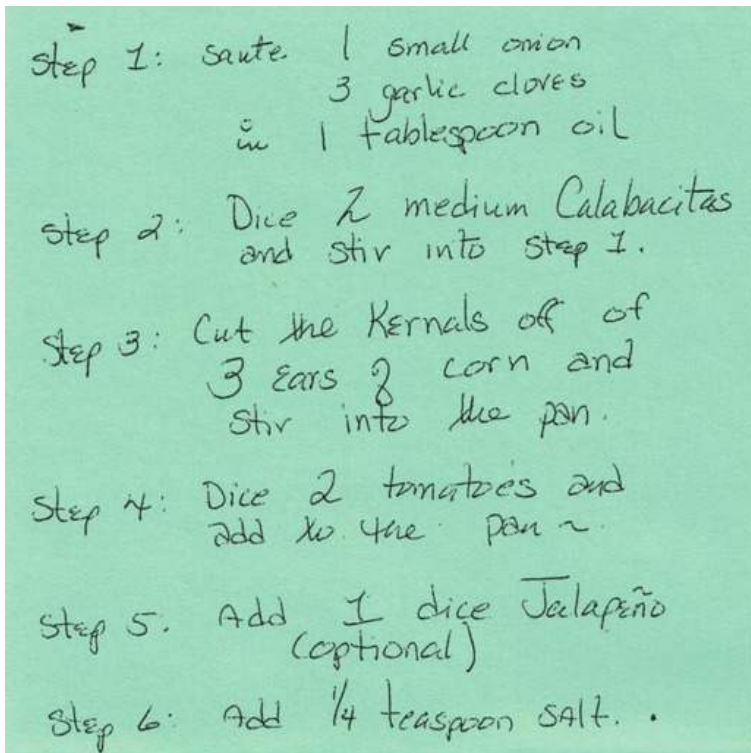 Step 1: Saute 1 small onion
3 garlic cloves
in 1 tablespoon oil
Step 2: Dice 2 medium Calabacitas
and stir into Step 1.
Step 3: Cut the Kernals off of
3 Ears of corn and
stir into the pan.
Step 4: Dice 2 tomatoes and
add to the pan ~
Step 5. Add 1 dice Jalapeño
(optional)
Step 6: Add 1/4 teaspoon SAlt.